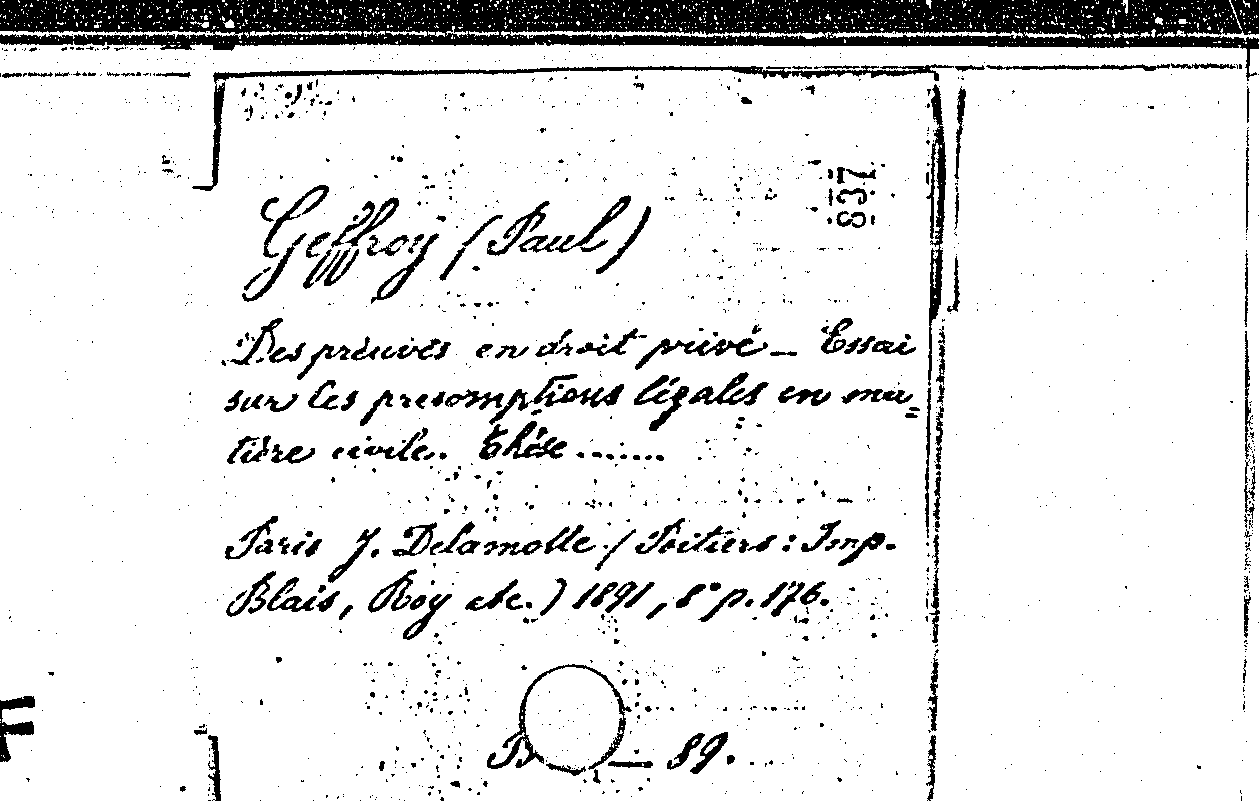 837
Geffroy (Paul)
Des preuves en droit privé — Essai
sur les presomptions légales en ma=
tière civile. Thèse .......
Paris J. Delamotte (Poitiers : Imp.
Blais, Roy etc.) 1891, 8° p. 176.
— 89.